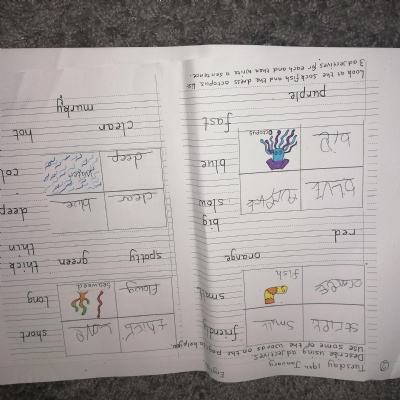 Tuesday 19th January
Describe using adjectives.
Use some of the words on the page to help you.
small friendly
orange fish small
orange
red
big
blue purple slow
octopus blue
fast
purple
Look at the sockfish and the dress and the octopus. Use
3 adjectives for each and then write a sentence.
short
flowy seaweed long
spotty green thick
thin
clear blue deep
deep water
clean hot
murky